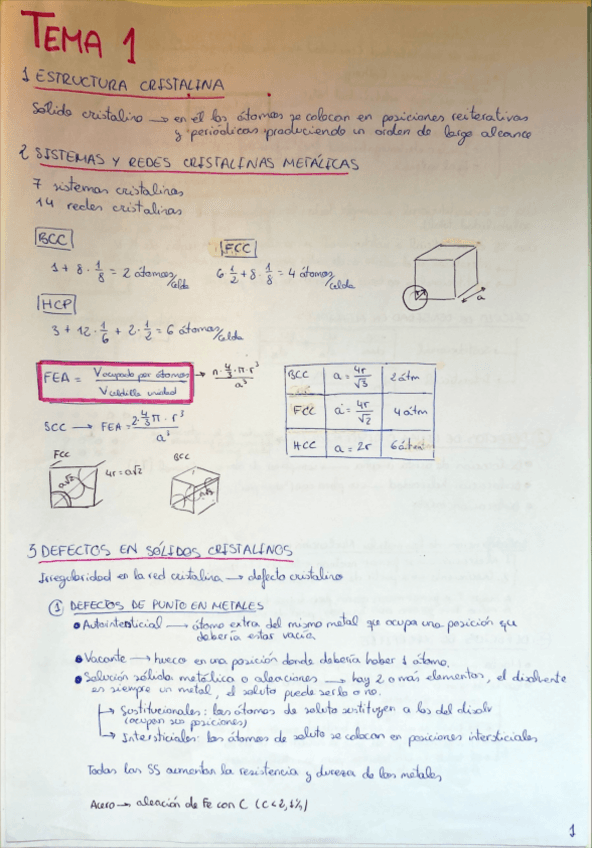 TEMA 1
1 ESTRUCTURA CRISTALINA
Sólido cristalino → en él los átomos se colocan en posiciones reiterativas
y periódicas produciendo un orden de largo alcance
2 SISTEMAS Y REDES CRISTALINAS METÁLICAS
7 sistemas cristalinos
14 redes cristalinas
BCC
1 + 8 · 1/8 = 2 átomos/celda
FCC
6 1/2 + 8 · 1/8 = 4 átomos/celda
a
HCP
3 + 12 · 1/6 + 2 · 1/2 = 6 átomos/celda
FEA = V ocupado por átomos / V celdilla unidad → n · 4/3 · π · r³ / a³
BCC → FEA = 2 · 4/3 π · r³ / a³
BCC a = 4r/√3 2 átm
FCC a = 4r/√2 4 átm
HCC a = 2r 6 átm
FCC
a√2
4r = a√2
BCC
3 DEFECTOS EN SÓLIDOS CRISTALINOS
Irregularidad en la red cristalina → defecto cristalino
① DEFECTOS DE PUNTO EN METALES
• Autointersticial → átomo extra del mismo metal que ocupa una posición que
debería estar vacía.
• Vacante → hueco en una posición donde debería haber 1 átomo.
• Solución sólida metálica o aleaciones → hay 2 o más elementos, el disolvente
es siempre un metal, el soluto puede serlo o no.
→ Sustitucionales: los átomos de soluto sustituyen a los del disolv
(ocupan sus posiciones)
→ Intersticiales: los átomos de soluto se colocan en posiciones intersticiales
Todas las SS aumentan la resistencia y dureza de los metales
Acero → aleación de Fe con C (C<2,1%)
1